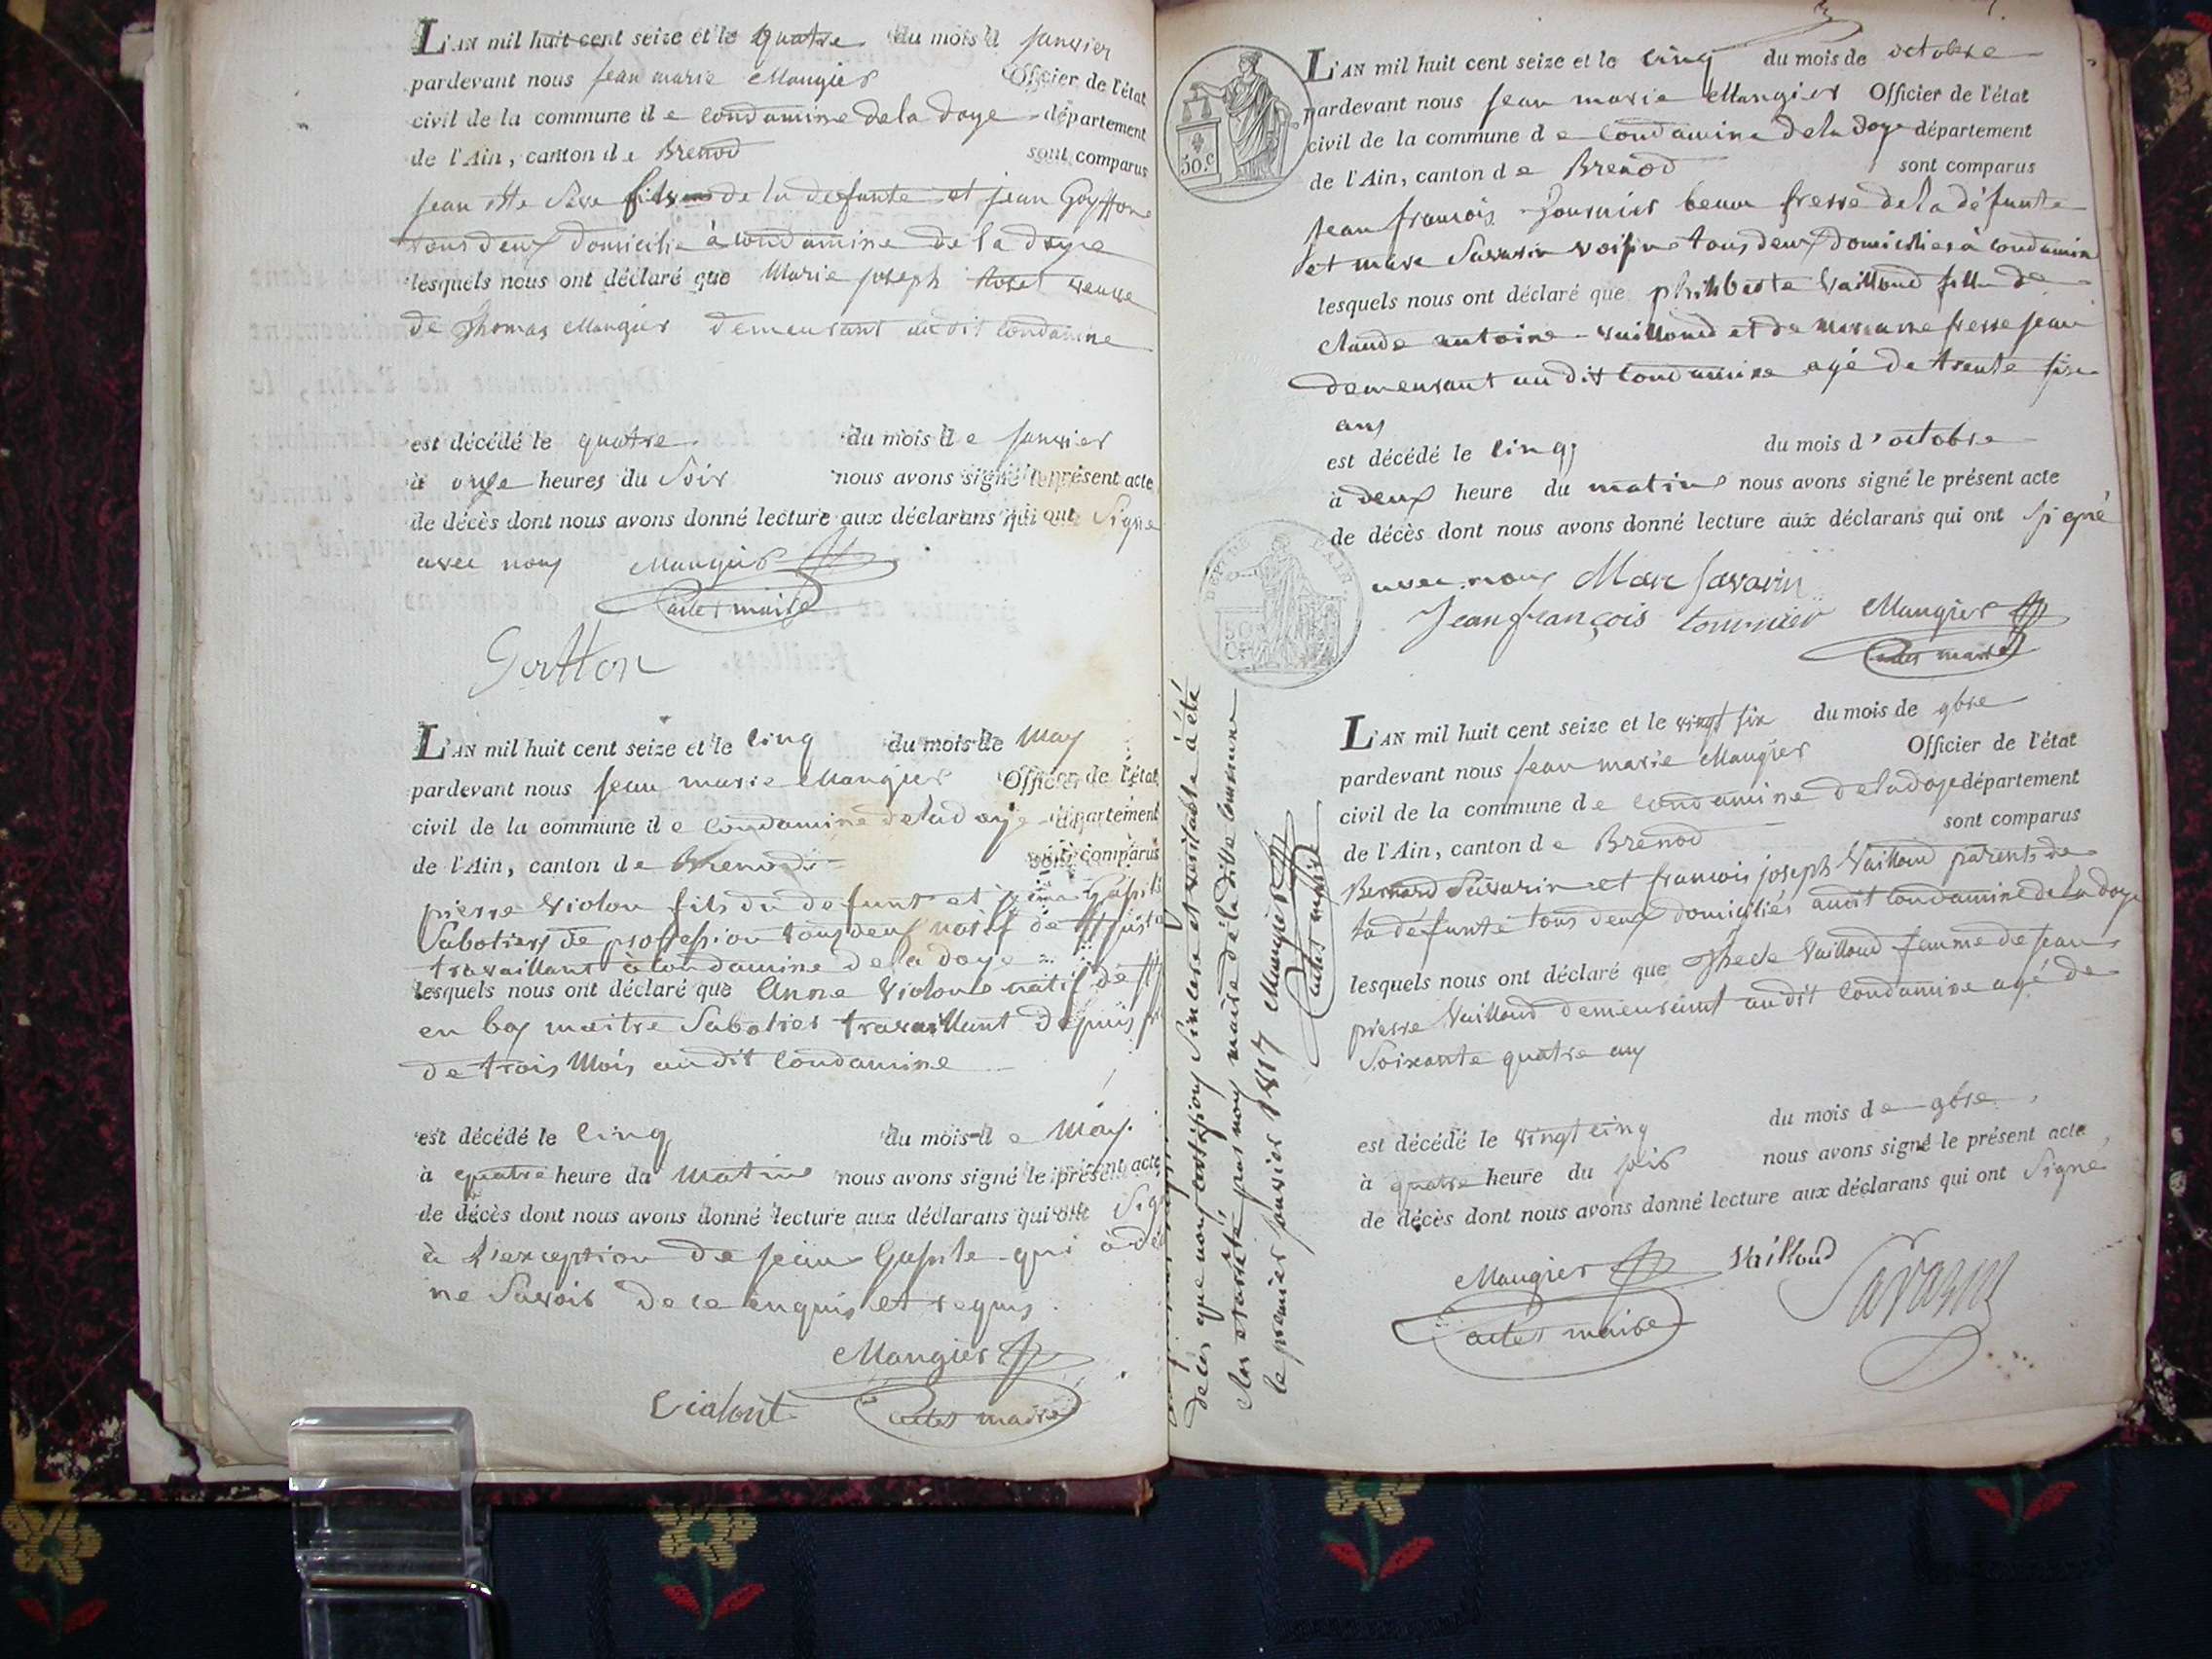 L'AN mil huit cent seize et le quatre du mois d janvier
pardevant nous jean marie Maugier Officier de l'état
civil de la commune de Condamine de la doye département
de l'Ain, canton de Brenod sont comparus
jean de la defunte et jean Goyffon
tous deux domicilie à condamine de la doye
lesquels nous ont déclaré que Marie joseph veuve
de Thomas Maugier demeurant audit Condamine
est décédé le quatre du mois de janvier
à onze heures du Soir nous avons signé le présent acte
de décès dont nous avons donné lecture aux déclarans qui ont Signe
avec nous Maugier
maire
L'AN mil huit cent seize et le cinq du mois de May
pardevant nous jean marie Maugier Officier de l'état
civil de la commune de Condamine de la doye département
de l'Ain, canton de Brenod sont comparus
pierre Violon fils du defunt et
Sabotiers de proffession tous deux natif de
travaillant à Condamine de la doye
lesquels nous ont déclaré que Anne Violon natif de
en bas maitre Sabotier travaillant depuis
de trois Mois audit Condamine
est décédé le Cinq du mois d e May
à quatre heure du Matin nous avons signé le présent acte
de décès dont nous avons donné lecture aux déclarans qui ont
à l'exception de jean qui
ne Savoir de ce enquis et requis
Maugier
maire
50.c
L'AN mil huit cent seize et le Cinq du mois de octobre
pardevant nous jean marie Maugier Officier de l'état
civil de la commune d e Condamine de la doye département
de l'Ain, canton d e Brenod sont comparus
jean francois Tournier beau frerre de la défunte
et marc Savarin voisin tous deux domiciliés à condamine
lesquels nous ont déclaré que philiberte Vailloud fille de
claude antoine Vailloud et de
demeurant audit Condamine agé de trente six
ans
est décédé le Cinq du mois d'octobre
à deux heure du matin nous avons signé le présent acte
de décès dont nous avons donné lecture aux déclarans qui ont signé
avec nous Marc Savarin
Jean françois tournier Maugier
maire
L'AN mil huit cent seize et le vingt six du mois de 9bre
pardevant nous jean marie Maugier Officier de l'état
civil de la commune d e Condamine de la doye département
de l'Ain, canton d e Brenod sont comparus
Bernard Savarin et francois joseph Vailloud parents de
la défunte tous deux domiciliés audit Condamine de la doye
lesquels nous ont déclaré que Thecle Vailloud femme de jean
pierre Vailloud demeurant audit Condamine agé de
Soixante quatre ans
est décédé le vingt cinq du mois d e 9bre
à quatre heure du soir nous avons signé le présent acte
de décès dont nous avons donné lecture aux déclarans qui ont Signé
Maugier Vailloud Savarin
maire
déces que nous certifions Sincere et véritable à été
clos et arreté par nous maire de la dite Commune
le premier janvier 1817 Maugier
maire